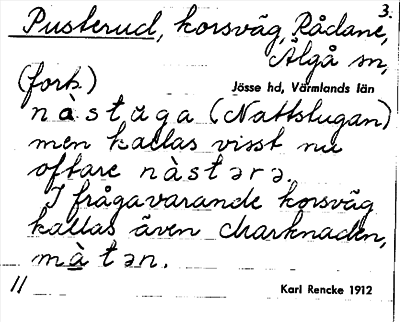 3.
Pusterud, korsväg, Rådane,
Älgå sn,
(forts.)
Jösse hd, Värmlands län
nàstuga (Nattstugan)
men kallas visst nu
oftare nàstərə.
I frågavarande korsväg
kallas även Marknaden,
màtən.
11
Karl Rencke 1912